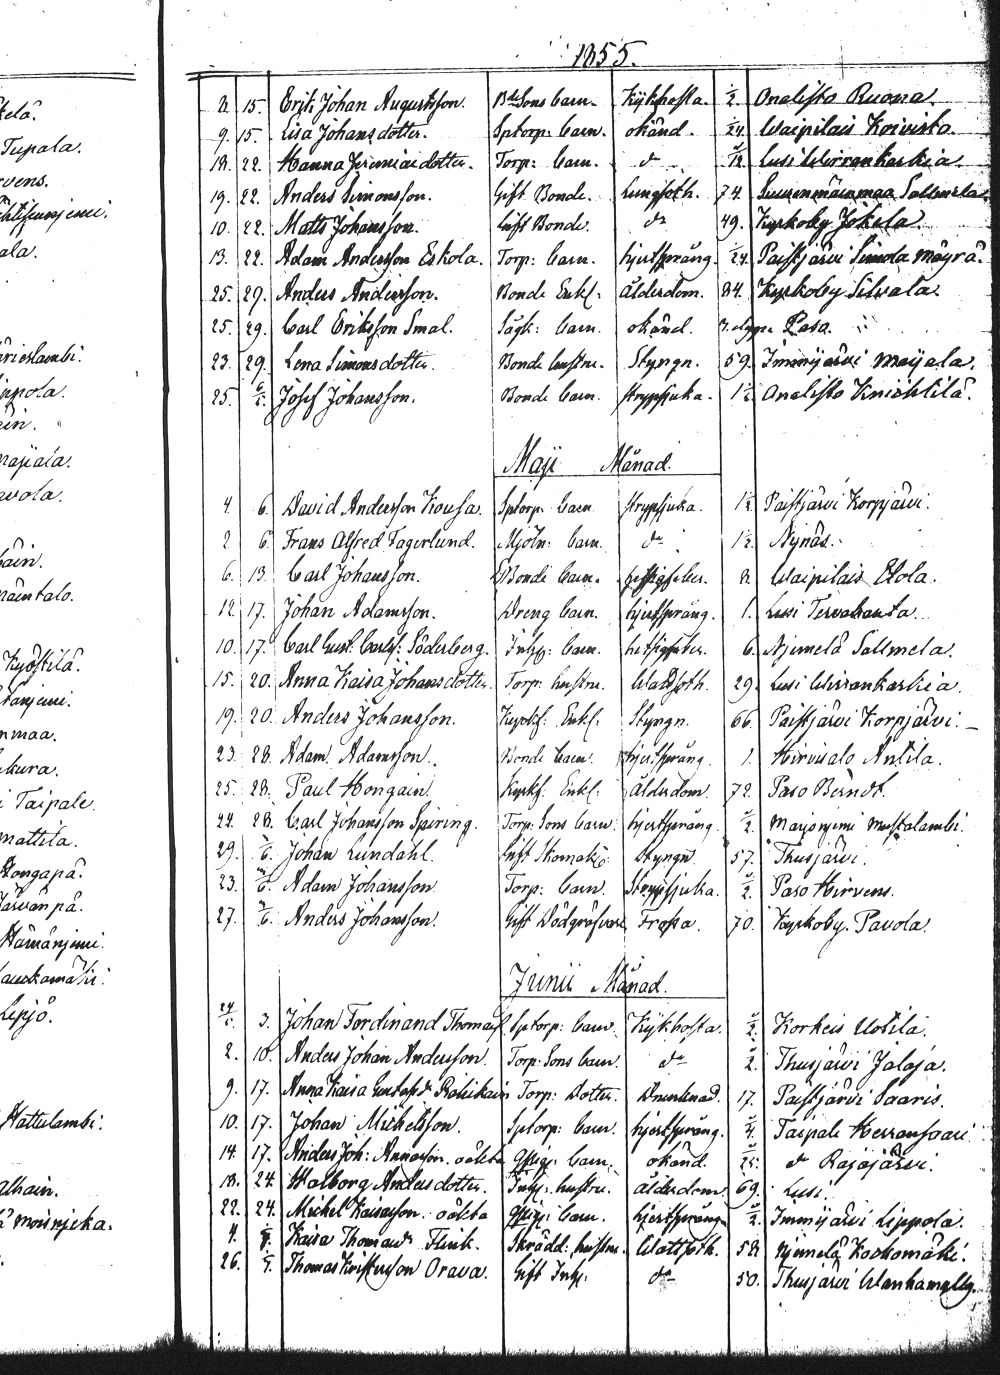 kelä.
Tupala.
vens.
ala.
lambi.
ppola.
ein.
majiala.
avola.
äin.
mäentalo.
Kyöstilä.
nmaa.
kura.
i Taipale.
mattila.
Hongapä.
Järvänpä.
Hämänjemi.
Lauskamäki.
Lepjö.
Hattulambi.
alhain.
1855.
8. 15. Erik Johan Augustsson. Bde Sons barn. Kykhosta. 1/2 Onalisto Ruona.
9. 15. Lisa Johansdotter. Sptorp: barn. okänd. 1/24 Waipilais Koivisto.
18. 22. Hanna Jeremiaedotter. Torp: barn. do /12 Lusi Wirrankoskia.
19. 22. Anders Simonsson. Gift Bonde. Lungsoth. 74. Suurenmäenmaa Sallmela.
10. 22. Matts Johansson. Gift Bonde. do 49. Kyrkoby Jokela.
13. 22. Adam Andersson Eskola. Torp: barn. hjertsprång. 1/24. Paistjärvi Simola Mäyrä.
25. 29. Anders Andersson. Bonde Enkl: Ålderdom. 84. Kyrkoby Silvala.
25. 29. Carl Eriksson Smal. Sågk: barn. okänd. 3. dygn Paso.
23. 29. Lena Simonsdotter. Bonde hustru. Styngn. 59. Immijärvi Maijala.
25. 6/5. Josef Johansson. Bonde barn. strypsjuka. 1 1/2 Onalisto Knichtilä.
Maji Månad.
4. 6. David Andersson Kousa. Sptorp: barn strypsjuka. 1 1/2 Paistjärvi Korpjärvi.
2. 6. Frans Alfred Fagerlund. Mjöln: barn. do 1 1/2 Nynäs.
6. 13. Carl Johansson. Bonde barn. hetsigfeber. 8. Waipilais Elola.
12. 17. Johan Adamsson. Dreng barn. hjertsprång. 1. Lusi Tervahauta.
10. 17. Carl Gust. Carls: Söderberg. Inhy: barn. hetsigfeber. 6. Njemelä Sallmela.
15. 20. Anna Kaisa Johansdotter. Torp: hustru. Watsoth. 29. Lusi Wirrankoskia.
19. 20. Anders Johansson. Enkl: Styngn. 66. Paistjärvi Korpjärvi.
23. 28. Adam Adamsson. Bonde barn. hjertsprång. 1. Hirvisalo Antila.
25. 28. Paul Hongain. Kyrkf: Enkl: Ålderdom. 72. Paso Berndt.
24. 28. Carl Johansson Spiring. Torp: Sons barn. hjertsprång. /2. Marjonjemi Mustalambi.
29. /6. Johan Lundahl. Gift Skomak: Styngn. 57. Thusjärvi.
23. /6. Adam Johansson. Torp: barn. Strypsjuka. /2. Paso Hirvens.
27. /6. Anders Johansson. Gift Dödgräfvare Frossa. 70. Kyrkoby. Pavola.
Junii Månad.
24/5. 3. Johan Ferdinand Thomass. Sptorp: barn. Kykhosta. /2. Korkeis Uotila.
2. 10. Anders Johan Andersson. Torp: Sons barn. do /2. Thusjärvi Jaloja.
9. 17. Anna Kaisa Gustafsdr Torp: Dotter. Drunknad. 17. Paistjärvi Saaris.
10. 17. Johan Michelsson. Sptorp: barn. hjertsprång. /4. Taipale Herransaari.
14. 17. Anders Joh: Annasson. oäkta barn. okänd. /25. do Rajajärvi.
18. 24. Walborg Andersdotter. Inhy: hustru. ålderdom. 69. Lusi.
22. 24. Michel Kaisasson. oäkta barn. hjertsprång. /2. Immijärvi Lippola.
4. Kaisa Thomasdr Flink. Skrädd: hustru. Watsoth. 58. Njemelä Kookomäki.
26. Thomas Kristersson Orava. Gift Inhy: do 50. Thusjärvi